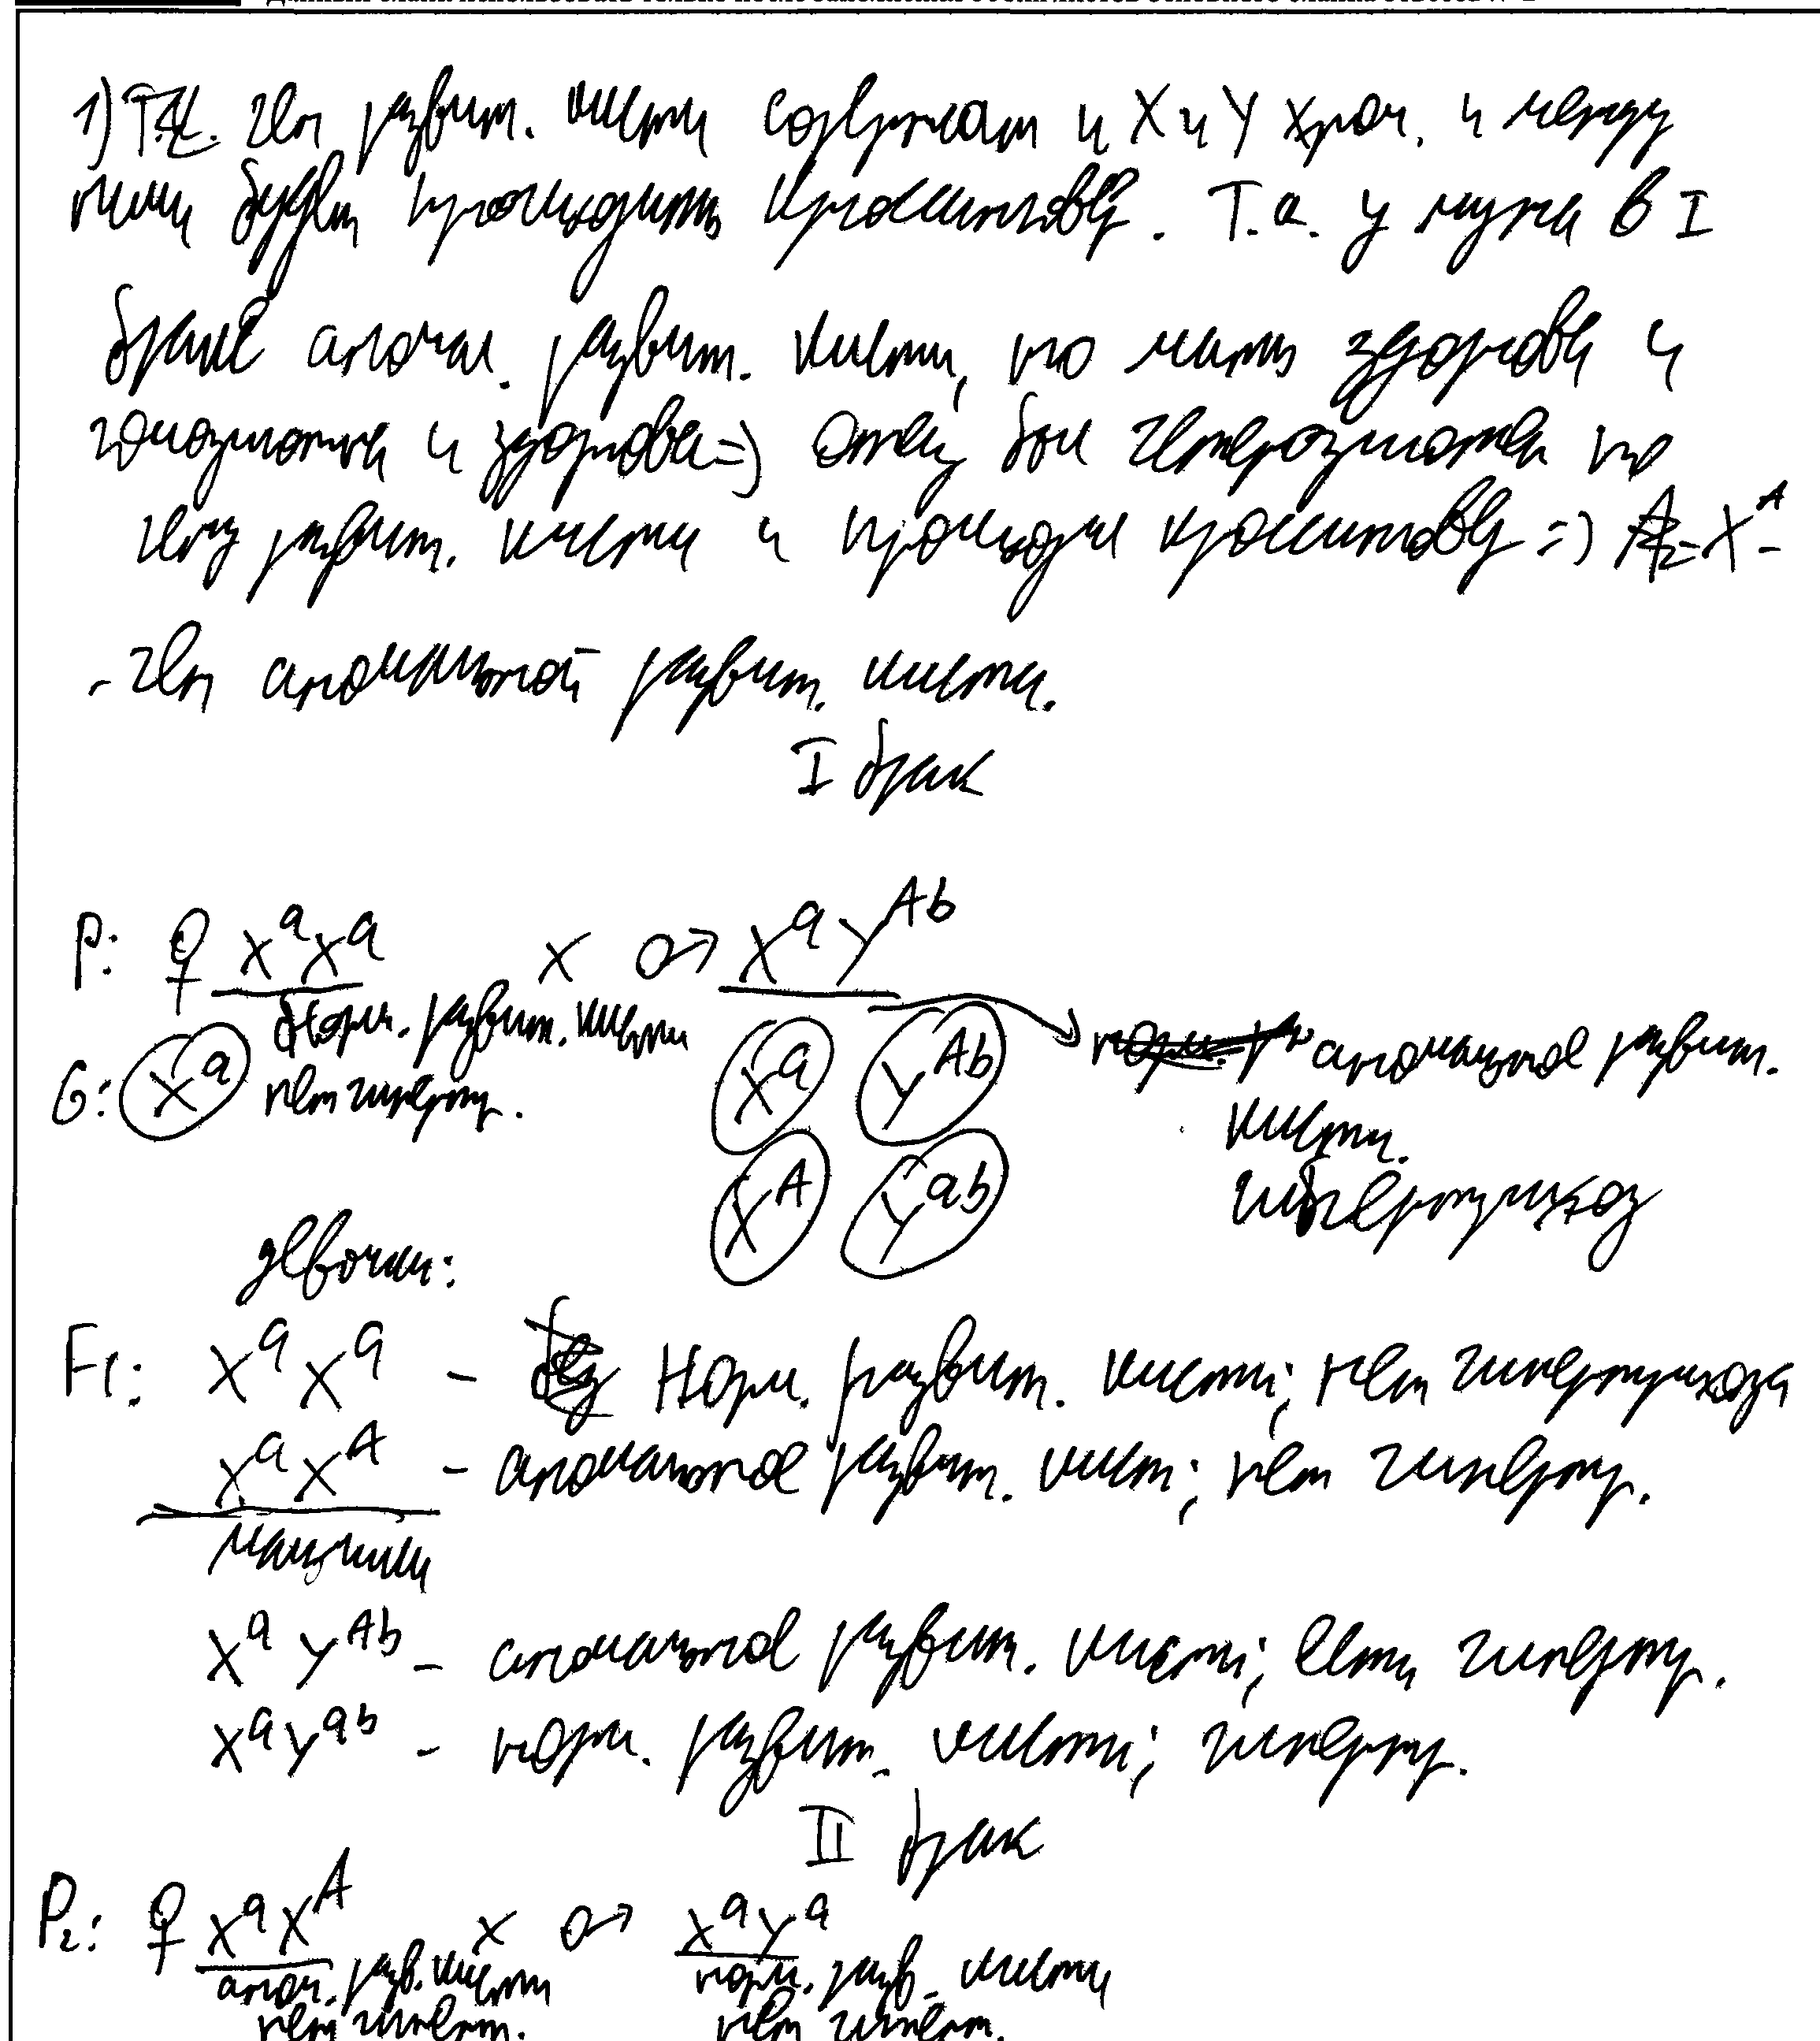 1) Т.к. ген развит. кисти содержат и X и Y хром. и между
ними будет происходить кроссинговер. Т.к. у мужа в I
браке аномал. развит. кисти, но мать здорова и
гомозиготна и здорова => отец был гетерозиготен по
гену развит. кисти и происходил кроссинговер => X^A -
- ген аномальной развит. кисти.
I брак
P: ♀ X^a X^a x ♂ X^a Y^Ab
норм. развит. кисти
G: X^a нет гипертр. X^a Y^Ab аномальное развит.
кисти.
X^A Y^ab гипертрихоз
девочки:
F1: X^a X^a - Норм. развит. кисти; нет гипертрихоза
X^a X^A - аномальное развит. кист; нет гипертр.
мальчики
X^a Y^Ab - аномальное развит. кисти; есть гипертр.
X^a Y^ab - норм. развит. кисти; гипертр.
II брак
P2: ♀ X^a X^A x ♂ X^a Y^a
аном. разв. кисти норм. разв. кисти
нет гиперт. нет гиперт.